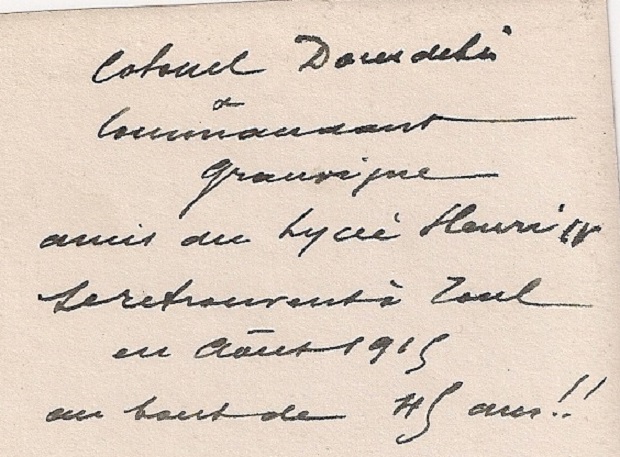 Colonel
&
Commandant
Grauvigne
amis du Lycée Henri IV
se retrouvent à Toul
en Août 1915
au bout de 45 ans!!